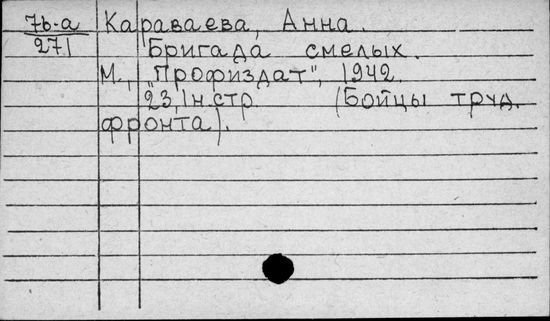 7b-a Караваева, Анна.
271 Бригада смелых.
М., "Профиздат", 1942.
23,1н.стр. (Бойцы труд.
фронта).